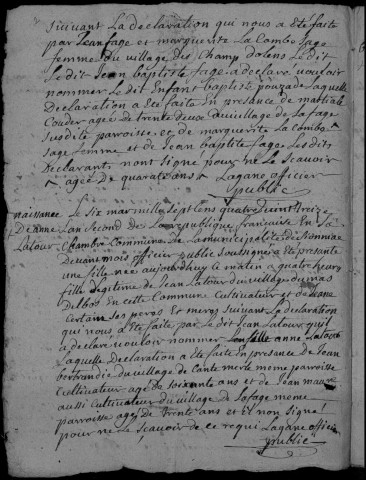 suivant La declaration qui nous a eté faite
par Jean fage et marguerite La Combe sage
femme du village des Champ dolens Le dit
Le dit Jean baptiste fage a declare vouloir
nommer Le dit Enfant baptiste pouzade Laquelle
Declaration a eté faite En presance de martiale
Couder agés de trente deux au village de Lafage
susdite parroisse et de marguerite La Combe
sage femme et de Jean baptiste fage Les dits
Declarant nont signe pour ne Le scavoir
agee De quarate ans Lagane officier
publie
naissance Le six mar mille sept sens quatre vuint treize
De anne Lan second de La republique francaise En La
Latour Chambre Commune de La municipalité de
Devant mois officier public soussigné a eté presante
une fille née aujordhuy Ce matin a quatre heures
fille Legitime de Jean Latour du village du mas
Delbos En cette Commune Cultivateur et de
Certain ses peres et meres suivant La declaration
qui nous a eté faite par Le dit Jean Latour quil
a declaré vouloir nommer son fille anne Latour
Laquelle Declaration a eté faite En presance De Jean
bertrandie du village de Cantemerle meme parroisse
Cultivateur age de soixante ans et de Jean
aussi Cultivateur du village de Lafage meme
parroisse agé De trente ans et il non signe
pour ne Le scavoir de ce requi Lagane officier
publie